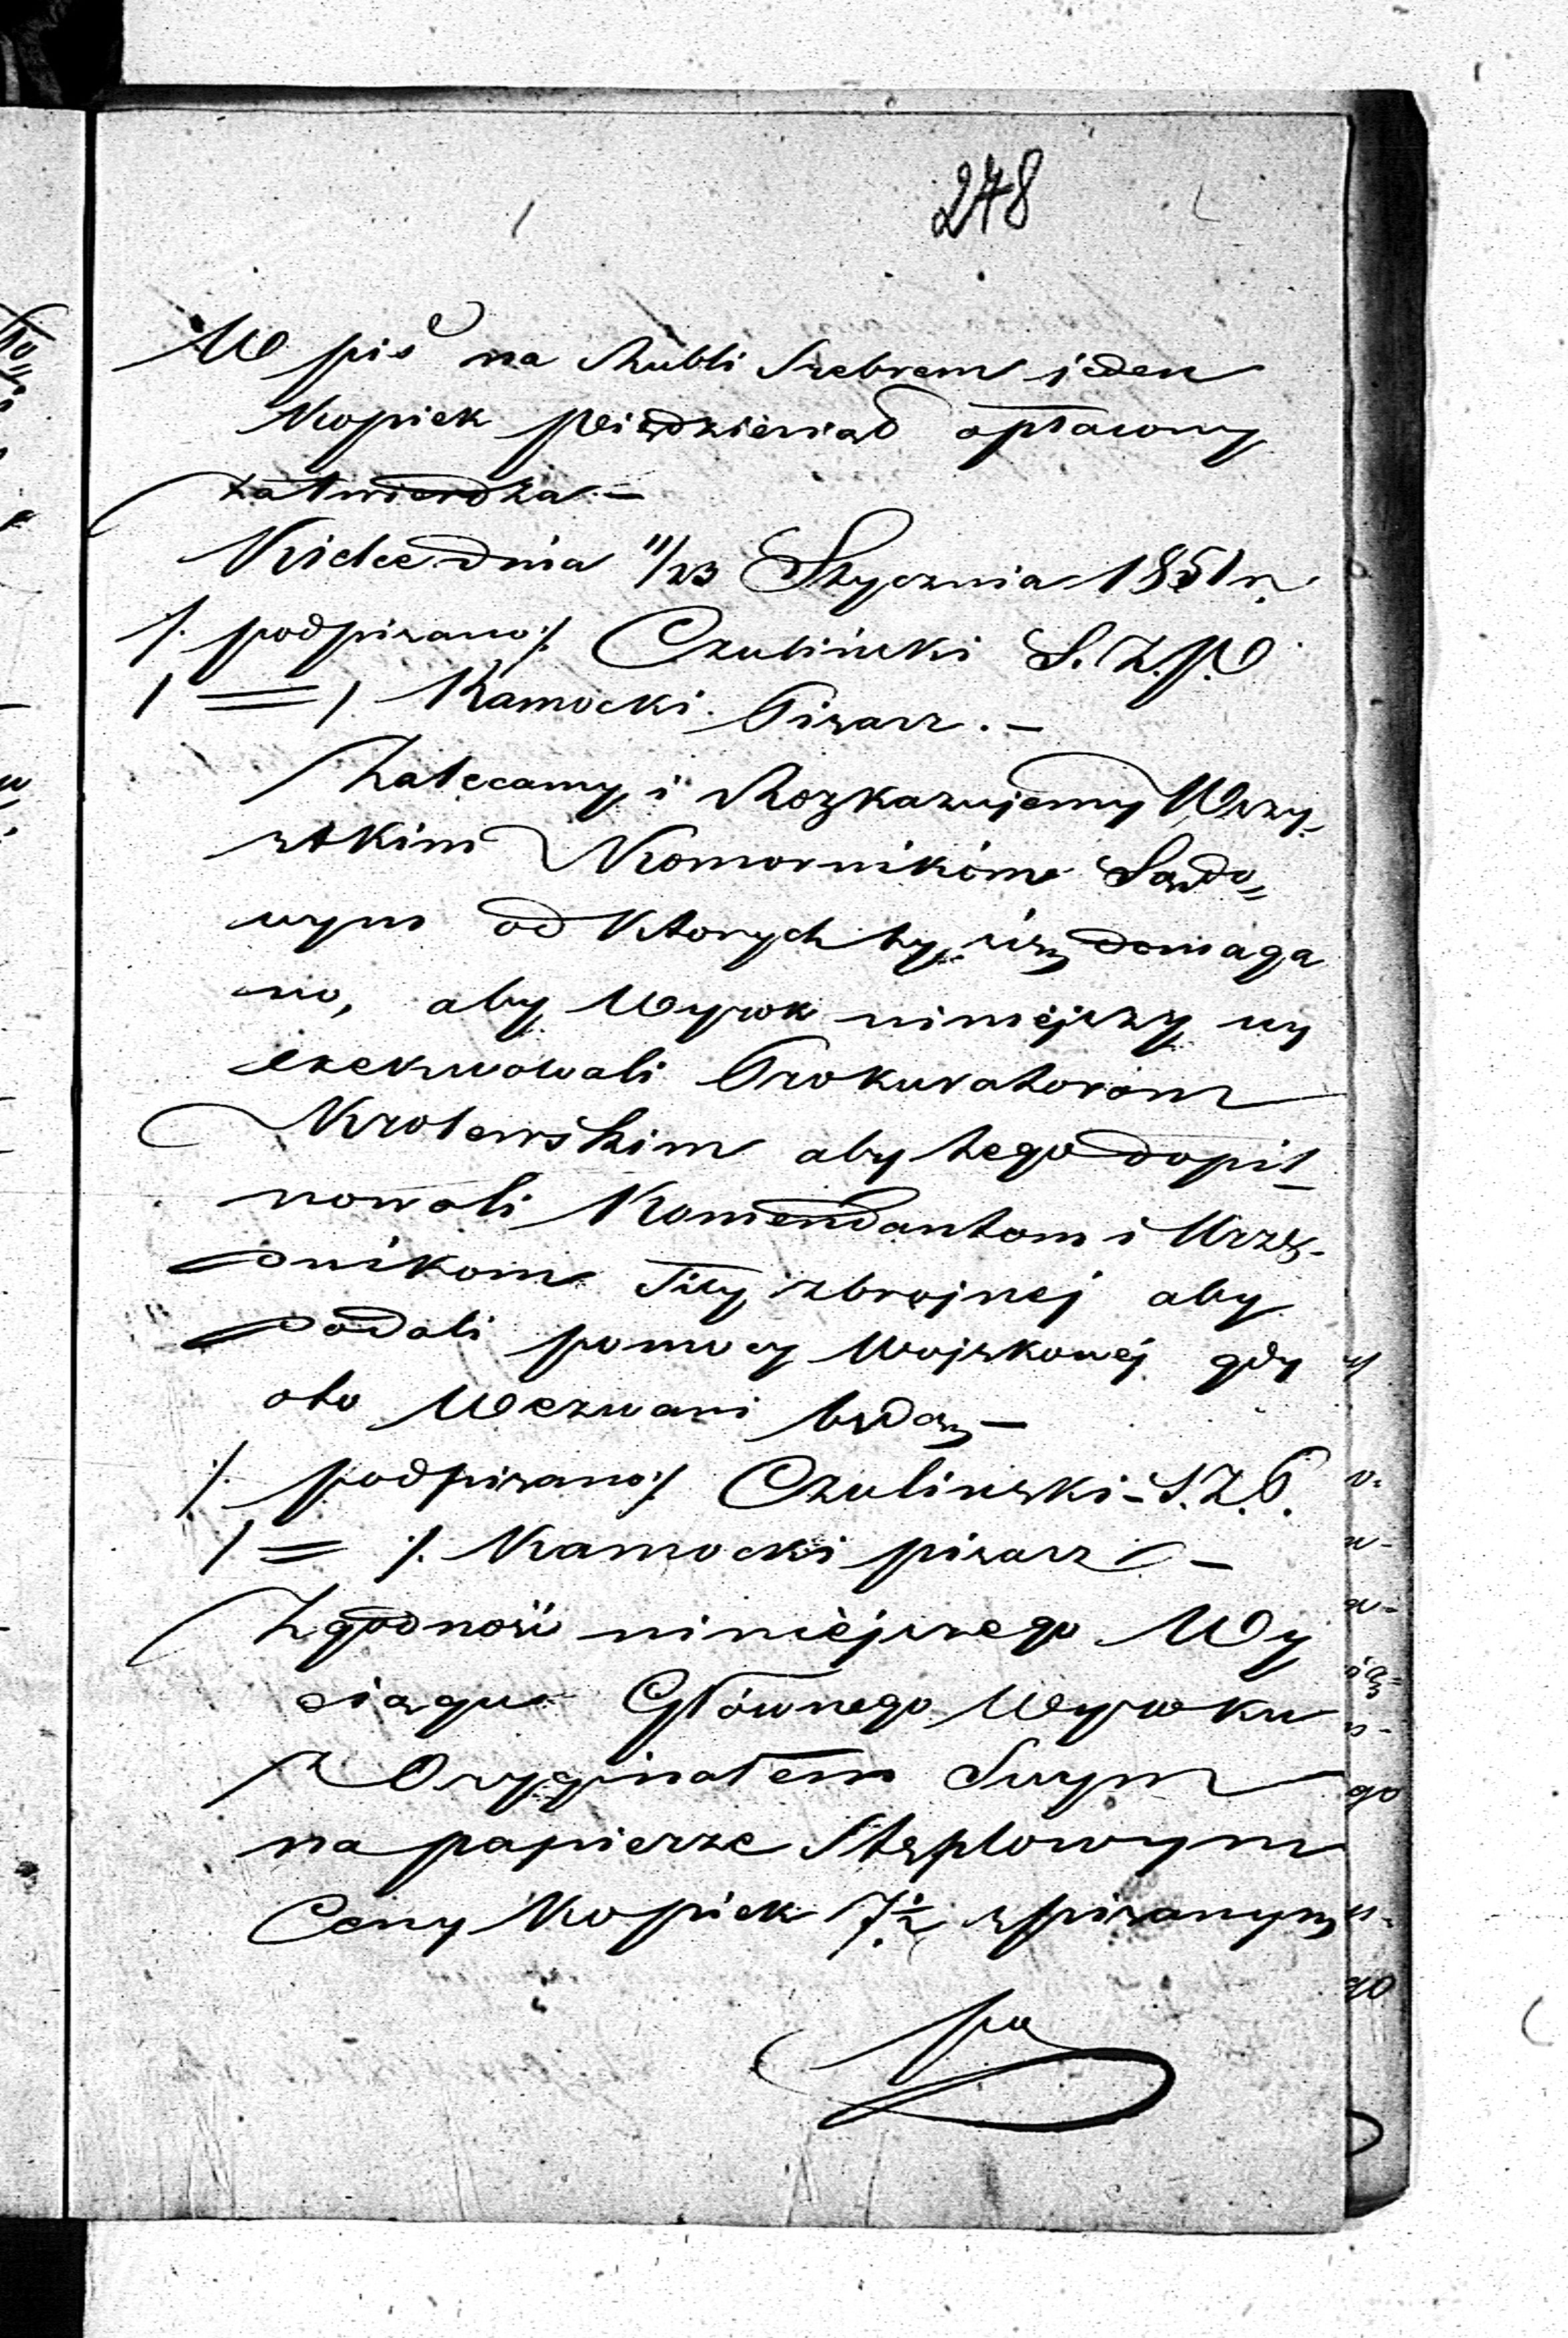 248
Wpis na Rubli Srebrem jeden
Kopiek pięćdziesiąt opłacony
zatwierdza. —
Kielce dnia 11/23 Stycznia 1851 r.
/. podpisano ./. Czuliński S. Z. P.
/ = / Kamocki. Pisarz. —
Zalecamy i Rozkazujemy Wszy-
stkim Komornikóm Sądo=
wym od ktorych by się domaga
no, aby Wyrok niniejszy wy
exekwowali Prokuratorom
Krolewskim aby tego dopil_
nowali Komendantom i Urzę-
dnikom Siły zbrojnej aby
dodali pomocy Wojskowéj gdy
oto Wezwani będą —
/. podpisano ./. Czulinski - S. Z. P.
/ = /. Kamocki pisarz —
Zgodność niniéjszego Wy
ciągu Głównego Wyroku
z Oryginałem Swym
na papierze Stęplowym
Ceny Kopiek 7½ spisanym